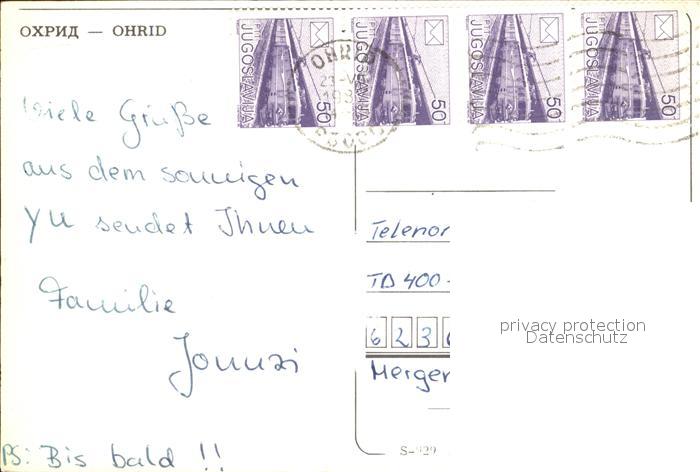 ОХРИД — OHRID
PTT JUGOSLAVIJA 50
PTT JUGOSLAVIJA 50
PTT JUGOSLAVIJA 50
PTT JUGOSLAVIJA 50
Viele Grüße
aus dem sonnigen
YU sendet Ihnen
Familie
Jonuzi
PS: Bis bald !!
Telenor
TD 400 -
6 2 3 6
Merger
privacy protection
Datenschutz